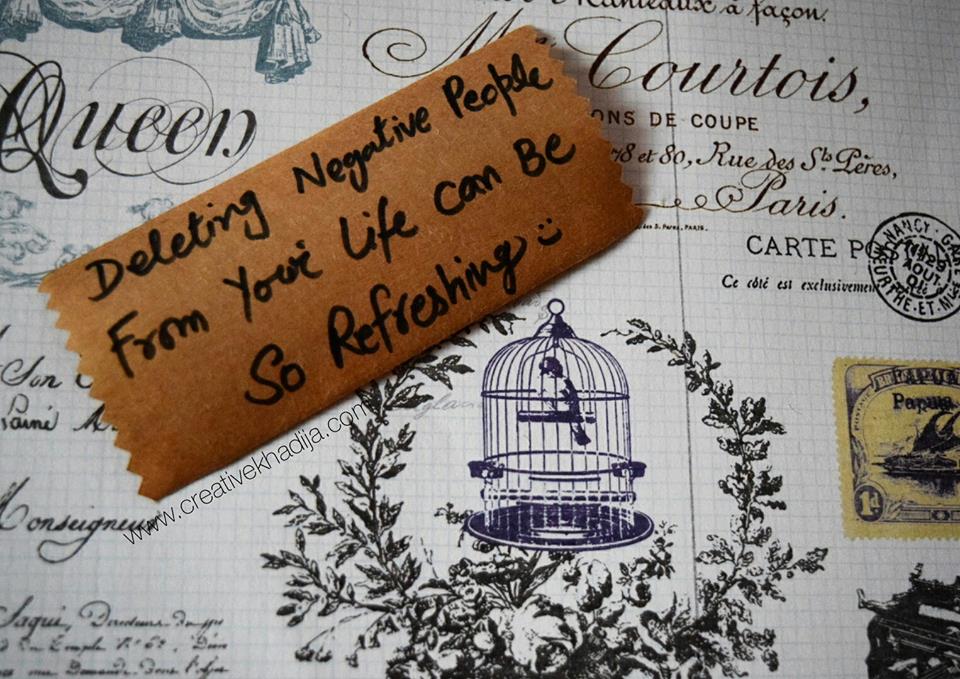 Manteaux à façon.
Queen
Courtois,
ONS DE COUPE
78 et 80, Rue des Sts Pères,
Paris.
CARTE PO
Ce côté est exclusivemen
NANCY
29
AOUT
01
MEURTHE-ET-M
Papua
1d
Deleting Negative People
From Your Life can Be
So Refreshing :)
www.creativekhadija.com
Son
Monseigneur